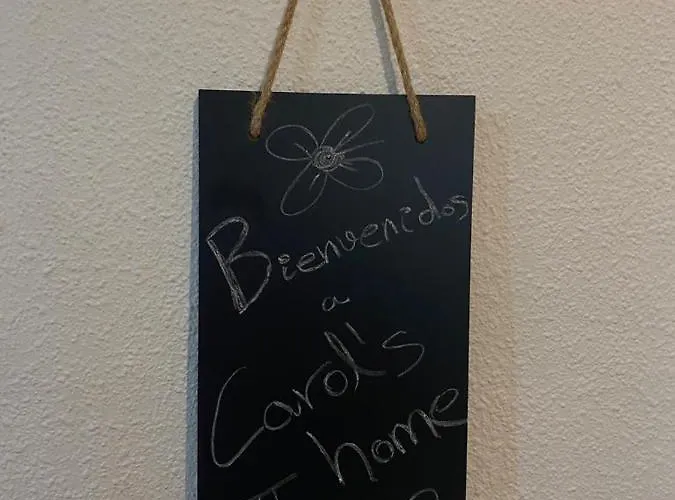 Bienvenidos
a
Carol's
home